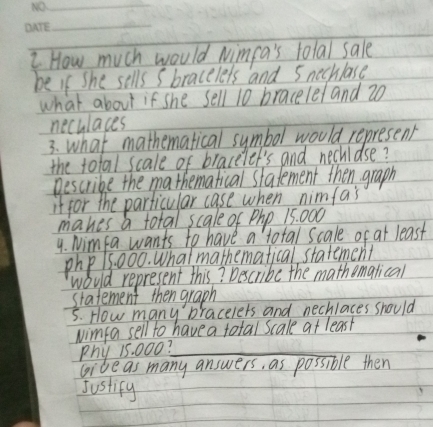 NO.
DATE
2. How much would Nimfa's total sale
be if she sells 5 bracelets and 5 necklase
what about if she sell 10 bracelet and 20
necklaces
3. what mathematical symbol would represent
the total scale of bracelet's and necklase?
Describe the mathematical statement then graph
it for the particular case when nimfa's
makes a total scale of Php 15.000
4. Nimfa wants to have a total scale of at least
php 15.000. What mathematical statement
would represent this? Describe the mathematical
statement then graph
5. How many bracelets and necklaces should
Nimfa sell to have a total scale at least
Php 15.000?
Give as many answers, as possible then
Justify